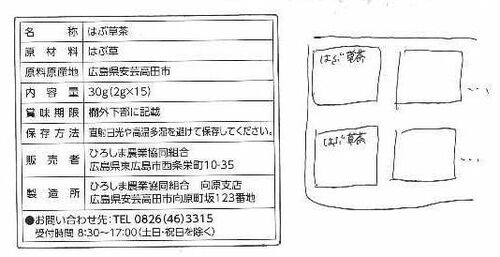 名称 はぶ草茶
原材料 はぶ草
原料原産地 広島県安芸高田市
内容量 30g(2g×15)
賞味期限 欄外下部に記載
保存方法 直射日光や高温多湿を避けて保存してください。
販売者 ひろしま農業協同組合
広島県東広島市西条栄町10-35
製造所 ひろしま農業協同組合 向原支店
広島県安芸高田市向原町坂123番地
●お問い合わせ先:TEL 0826(46)3315
受付時間 8:30~17:00(土日・祝日を除く)
はぶ草茶
はぶ草茶